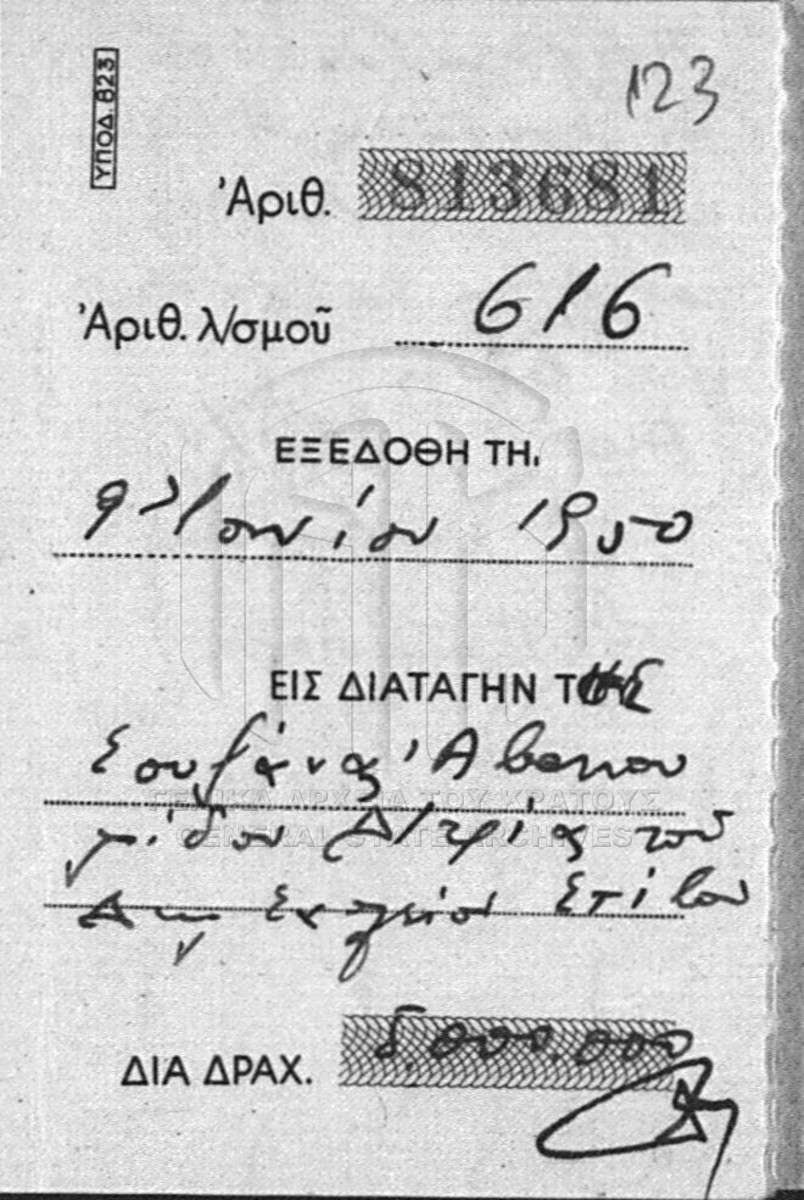 123
ΥΠΟΔ. 823
Ἀριθ. 813681
Ἀριθ. λ/σμοῦ 616
ΕΞΕΔΟΘΗ ΤΗ,
9 Ἰουνίου 1950
ΕΙΣ ΔΙΑΤΑΓΗΝ Της
Σουζάνας
ΓΕΝΙΚΑ ΑΡΧΕΙΑ ΤΟΥ ΚΡΑΤΟΥΣ
GENERAL STATE ARCHIVES
Δ/τρίας τοῦ
ΔΙΑ ΔΡΑΧ. 5.000.000